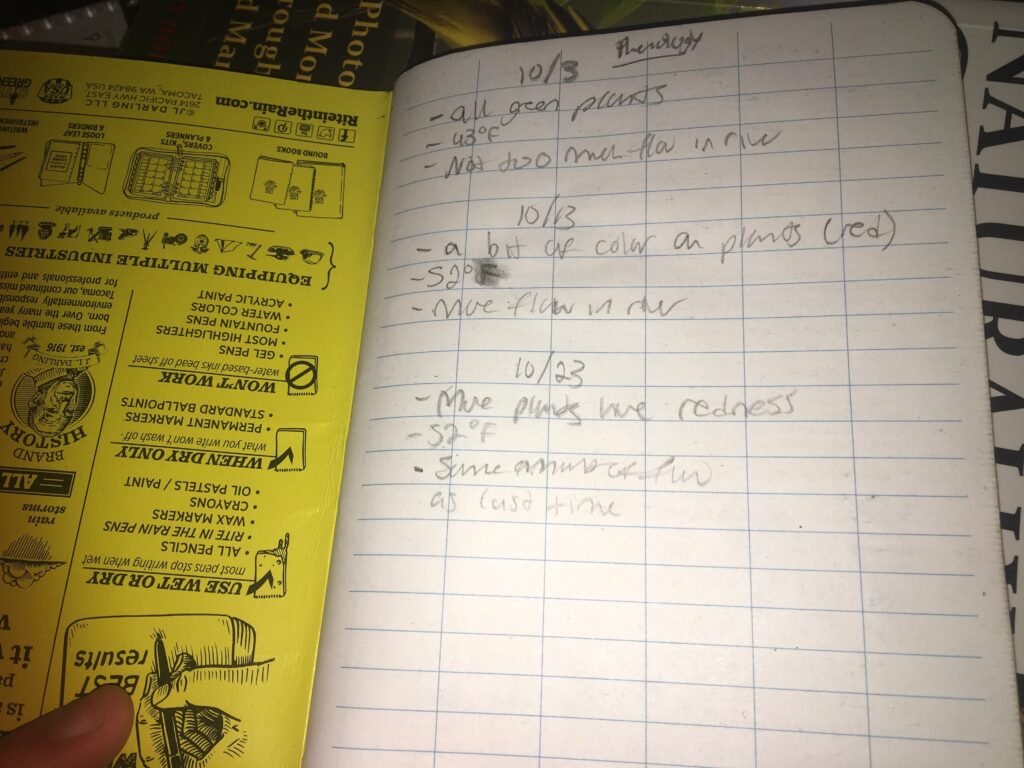 Phenology
10/3
- all green plants
- 43°F
- Not too much flow in river
10/13
- a bit of color on plants (red)
- 52°F
- More flow in river
10/23
- More plants have redness
- 52°F
- Same amount of flow
as last time
Photo
nd Mo
rough
d Ma
NATURA
©JL DARLING LLC
2614 PACIFIC HWY EAST,
TACOMA, WA 98424 USA
RiteintheRain.com
BOUND BOOKS
COVERS, KITS
& PLANNERS
LOOSE LEAF
& BINDERS
WRITING
INSTRUMEN
products available
EQUIPPING MULTIPLE INDUSTRIES
USE WET OR DRY
most pens stop writing when wet
• ALL PENCILS
• RITE IN THE RAIN PENS
• WAX MARKERS
• CRAYONS
• OIL PASTELS / PAINT
WHEN DRY ONLY
what you write won't wash off
• PERMANENT MARKERS
• STANDARD BALLPOINTS
WON'T WORK
water-based inks bead off sheet
• GEL PENS
• MOST HIGHLIGHTERS
• FOUNTAIN PENS
• WATER COLORS
• ACRYLIC PAINT
BEST
results
ALL
rain
storms
BRAND
HISTORY
J.L. DARLING
est. 1916
From these humble begin
born. Over the many year
environmentally responsib
Tacoma, our continued miss
for professionals and enth